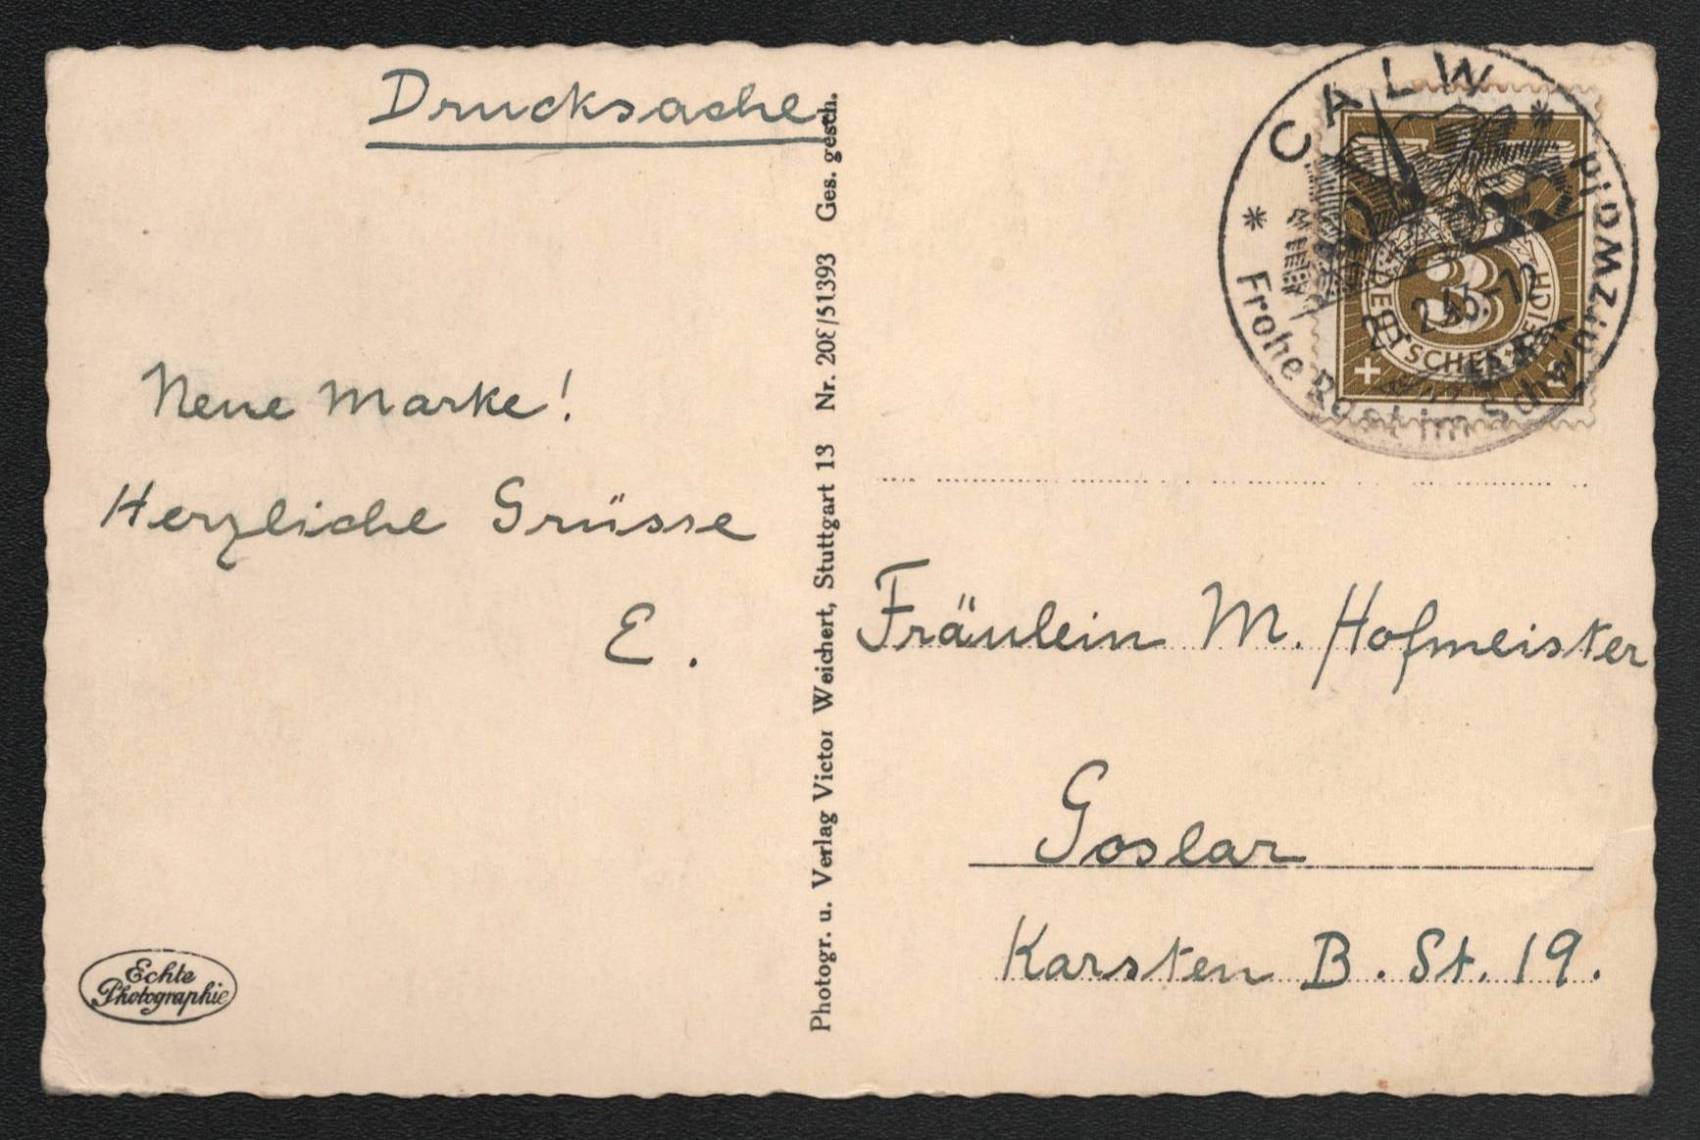 Drucksache
Neue Marke!
Herzliche Grüsse
E.
Echte
Photographie
Photogr. u. Verlag Victor Weichert, Stuttgart 13 Nr. 208/51393 Ges. gesch.
CALW
* Frohe Rast im Schwarzwald *
3
DEUTSCHES REICH
Fräulein M. Hofmeister
Goslar
Karsten B. St. 19.